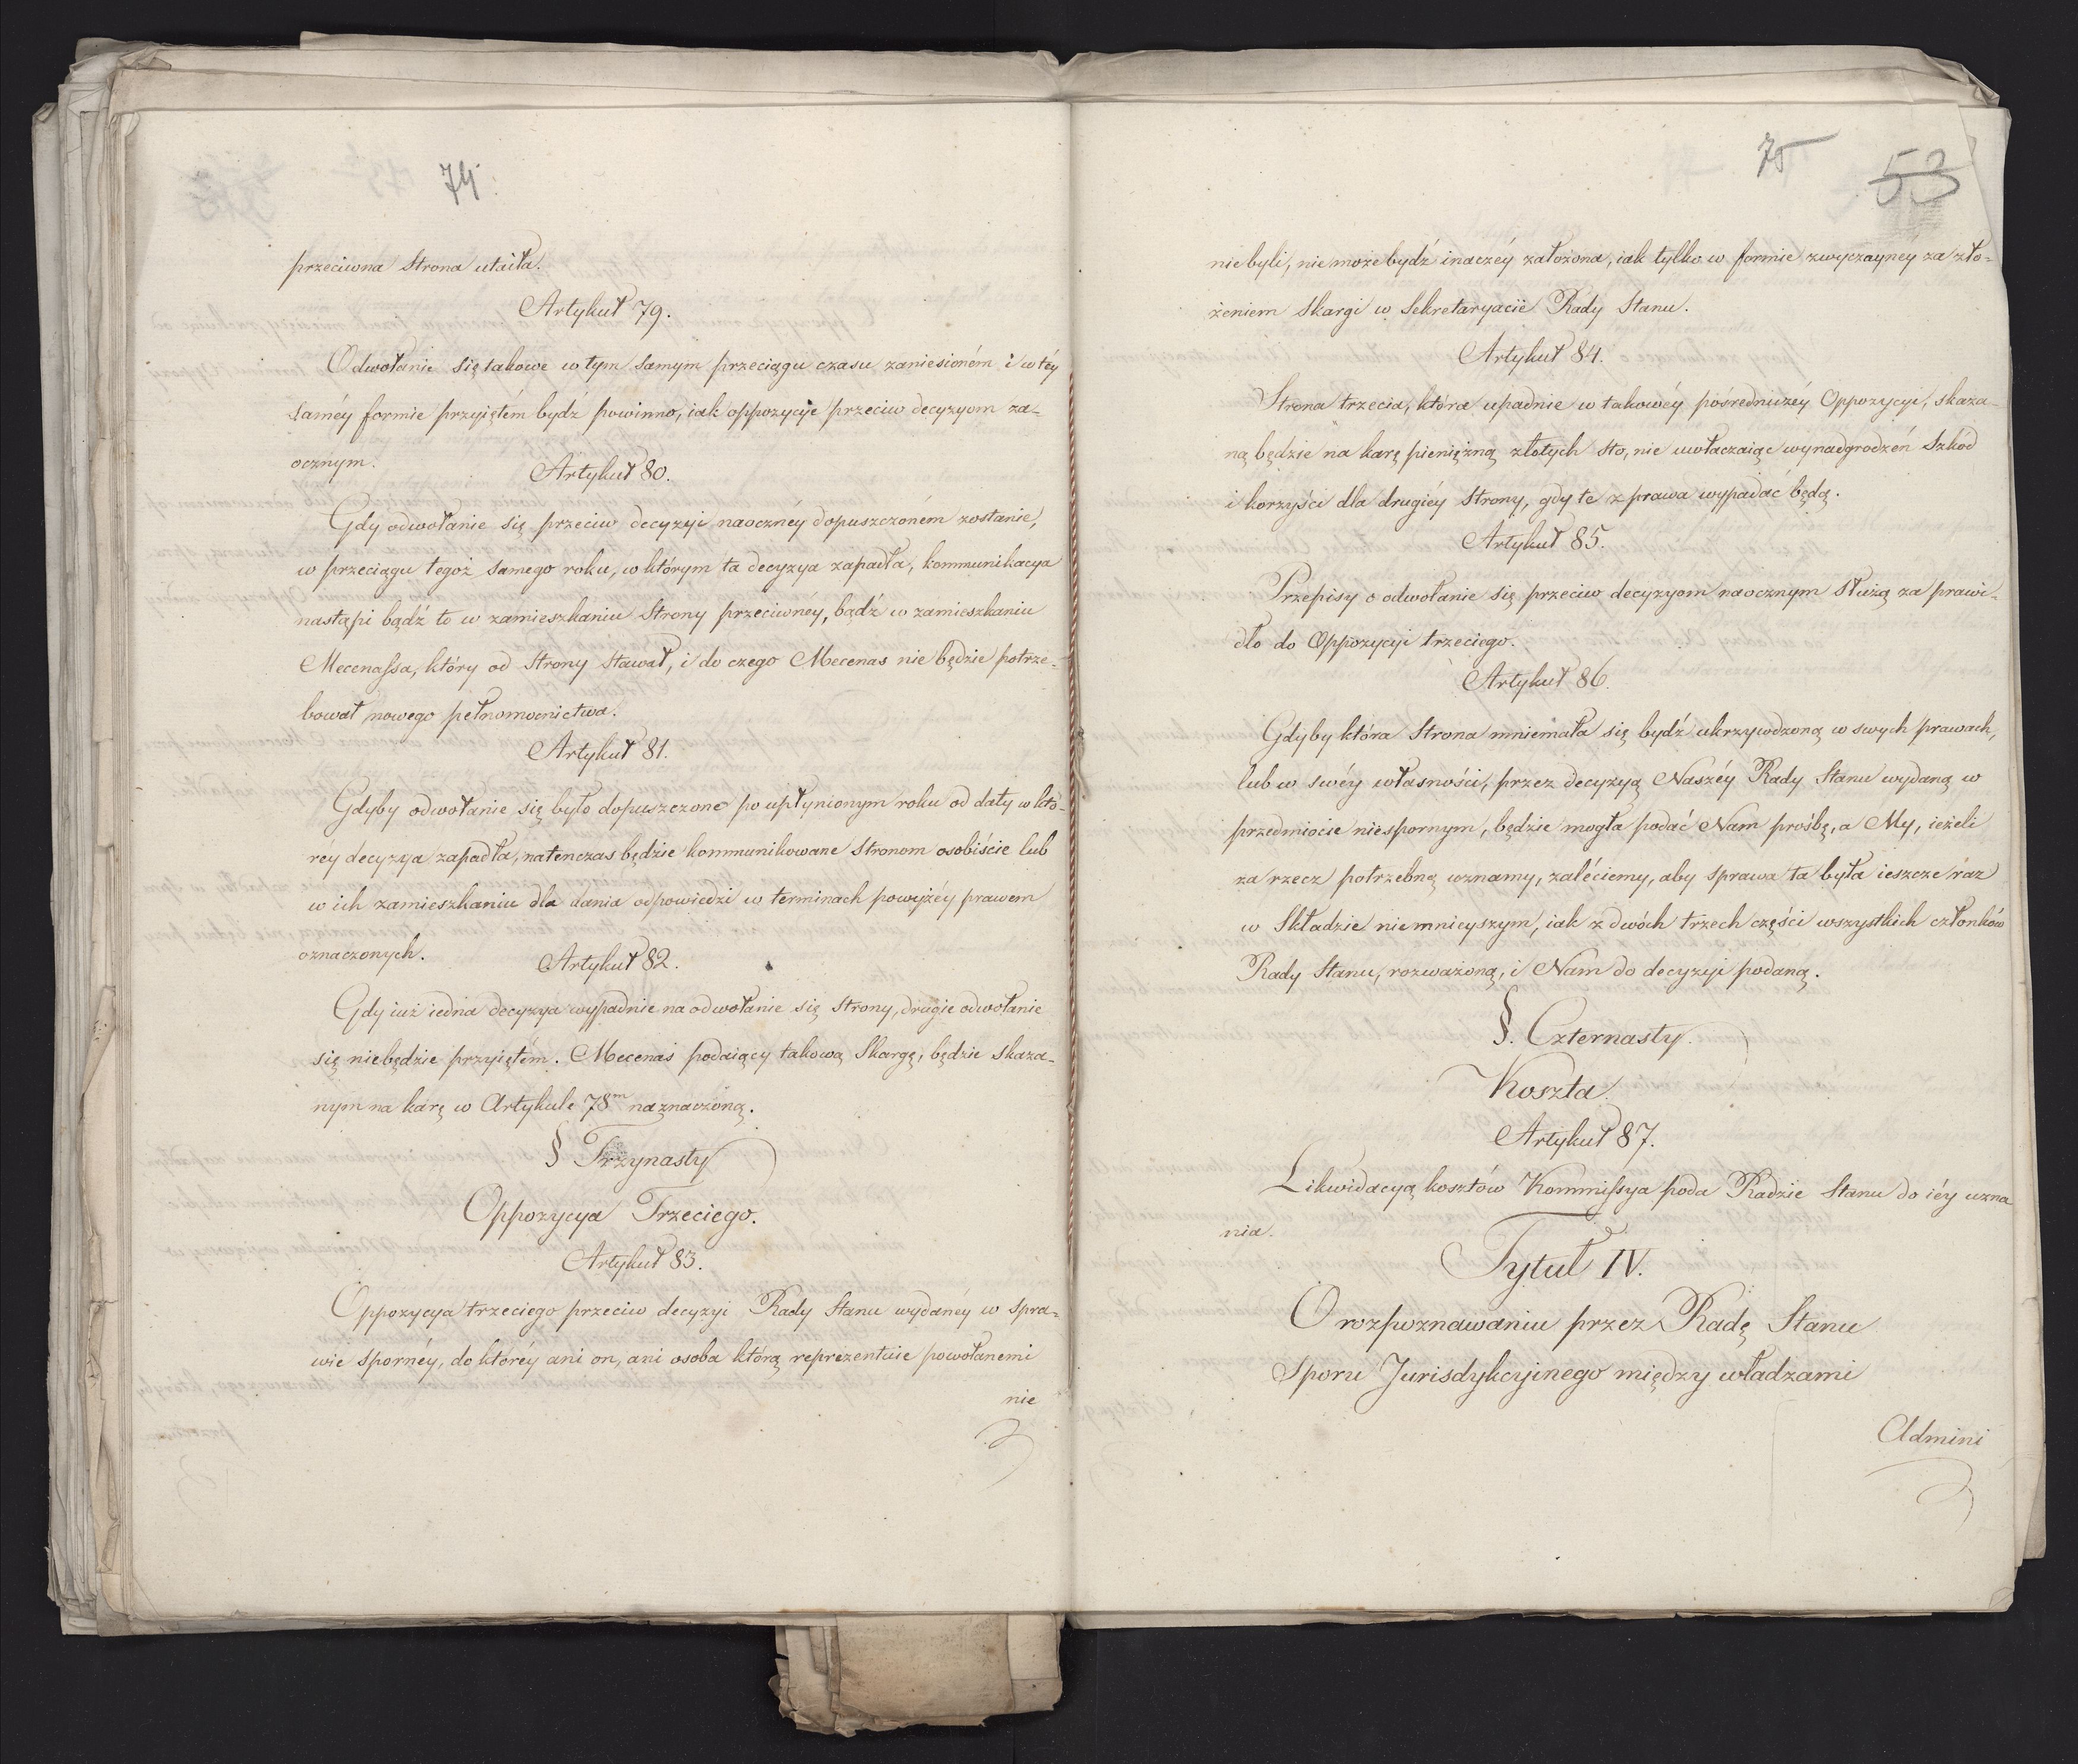 74.
przeciwna Strona utaiła.
Artykuł 79.
Odwołanie się takowe w tym samym przeciągu czasu zaniesioném i w téy
saméy formie przyiętém bydź powinno, iak oppozycyje przeciw decyzyom za-
ocznym.
Artykuł 80.
Gdy odwołanie się przeciw decyzyi naocznéy dopuszczoném zostanie,
w przeciągu tegoż samego roku, w którym ta decyzya zapadła, kommunikacya
nastąpi bądź to w zamieszkaniu Strony przeciwnéy, bądź w zamieszkaniu
Mecenassa, który od Strony stawał, i do czego Mecenas nie będzie potrze-
bował nowego pełnomocnictwa.
Artykuł 81.
Gdyby odwołanie się było dopuszczone po upłynionym roku od daty w któ-
réy decyzya zapadła, natenczas będzie kommunikowane Stronom osobiście lub
w ich zamieszkaniu dla dania odpowiedzi w terminach powyżéy prawem
oznaczonych.
Artykuł 82.
Gdy iuż iedna decyzya wypadnie na odwołanie się Strony, drugie odwołanie
się niebędzie przyiętém. Mecenas podaiący takową Skargę, będzie skaza-
nym na karę w Artykule 78m naznaczoną.
§ Trzynasty
Oppozycya Trzeciego.
Artykuł 83.
Oppozycya trzeciego przeciw decyzyi Rady Stanu wydanéy w spra-
wie spornéy, do któréy ani on, ani osoba którą reprezentuie powołanemi
nie
75
53
nie byli, nie może bydź inaczéy założona, iak tylko w formie zwyczaynéy za zło-
żeniem Skargi w Sekretaryacie Rady Stanu.
Artykuł 84.
Strona trzecia, która upadnie w takowéy pośredniczéy Oppozycyi, skaza-
ną będzie na karę pieniężną złotych sto, nie uwłaczaiąc wynadgrodzeń Szkód
i korzyści dla drugiéy Strony, gdy te z prawa wypadać będą.
Artykuł 85.
Przepisy o odwołanie się przeciw decyzyom naocznym służą za prawi-
dło do Oppozycyi trzeciego.
Artykuł 86.
Gdyby która Strona mniemała się bydź ukrzywdzoną w swych prawach,
lub w swéy własności, przez decyzyą Naszéy Rady Stanu wydaną w
przedmiocie niespornym, będzie mogła podać Nam prośbę, a My, ieżeli
za rzecz potrzebną uznamy, zaléciemy, aby sprawa ta była ieszcze raz
w Składzie niemnieyszym, iak z dwóch trzech części wszystkich członków
Rady Stanu, rozważoną, i Nam do decyzyi podaną.
§. Czternasty.
Koszta.
Artykuł 87.
Likwidacyą kosztów Kommissya poda Radzie Stanu do iéy uzna
nia.
Tytuł IV.
O rozpoznawaniu przez Radę Stanu
Sporu Jurisdykcyinego między władzami
Admini